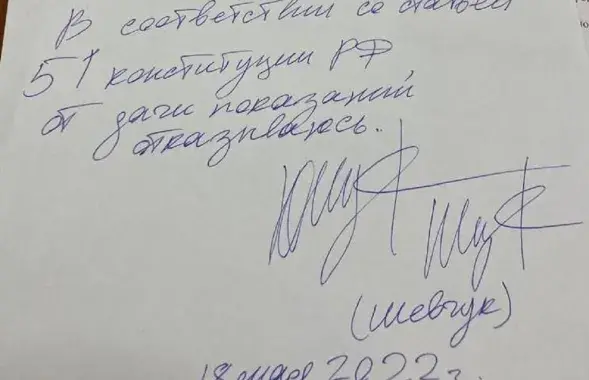 В соответствии со статьей
51 конституции РФ,
от дачи показаний
отказываюсь.
(Шевчук)
18 мая 2022 г.